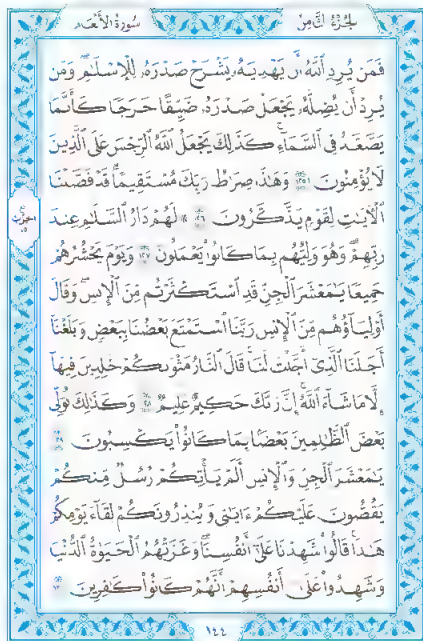 الجزء الثامن
سورة الأنعام
فَمَن يُرِدِ ٱللَّهُ أَن يَهْدِيَهُۥ يَشْرَحْ صَدْرَهُۥ لِلْإِسْلَٰمِ ۖ وَمَن
يُرِدْ أَن يُضِلَّهُۥ يَجْعَلْ صَدْرَهُۥ ضَيِّقًا حَرَجًا كَأَنَّمَا
يَصَّعَّدُ فِى ٱلسَّمَآءِ ۚ كَذَٰلِكَ يَجْعَلُ ٱللَّهُ ٱلرِّجْسَ عَلَى ٱلَّذِينَ
لَا يُؤْمِنُونَ ١٢٥ وَهَٰذَا صِرَٰطُ رَبِّكَ مُسْتَقِيمًا ۗ قَدْ فَصَّلْنَا
ٱلْءَايَٰتِ لِقَوْمٍ يَذَّكَّرُونَ ١٢٦ لَهُمْ دَارُ ٱلسَّلَٰمِ عِندَ
رَبِّهِمْ ۖ وَهُوَ وَلِيُّهُم بِمَا كَانُوا۟ يَعْمَلُونَ ١٢٧ وَيَوْمَ يَحْشُرُهُمْ
جَمِيعًا يَٰمَعْشَرَ ٱلْجِنِّ قَدِ ٱسْتَكْثَرْتُم مِّنَ ٱلْإِنسِ ۖ وَقَالَ
أَوْلِيَآؤُهُم مِّنَ ٱلْإِنسِ رَبَّنَا ٱسْتَمْتَعَ بَعْضُنَا بِبَعْضٍ وَبَلَغْنَآ
أَجَلَنَا ٱلَّذِىٓ أَجَّلْتَ لَنَا ۚ قَالَ ٱلنَّارُ مَثْوَىٰكُمْ خَٰلِدِينَ فِيهَآ
إِلَّا مَا شَآءَ ٱللَّهُ ۗ إِنَّ رَبَّكَ حَكِيمٌ عَلِيمٌ ١٢٨ وَكَذَٰلِكَ نُوَلِّى
بَعْضَ ٱلظَّٰلِمِينَ بَعْضًۢا بِمَا كَانُوا۟ يَكْسِبُونَ ١٢٩
يَٰمَعْشَرَ ٱلْجِنِّ وَٱلْإِنسِ أَلَمْ يَأْتِكُمْ رُسُلٌ مِّنكُمْ
يَقُصُّونَ عَلَيْكُمْ ءَايَٰتِى وَيُنذِرُونَكُمْ لِقَآءَ يَوْمِكُمْ
هَٰذَا ۚ قَالُوا۟ شَهِدْنَا عَلَىٰٓ أَنفُسِنَا ۖ وَغَرَّتْهُمُ ٱلْحَيَوٰةُ ٱلدُّنْيَا
وَشَهِدُوا۟ عَلَىٰٓ أَنفُسِهِمْ أَنَّهُمْ كَانُوا۟ كَٰفِرِينَ ١٣٠
١٤٤